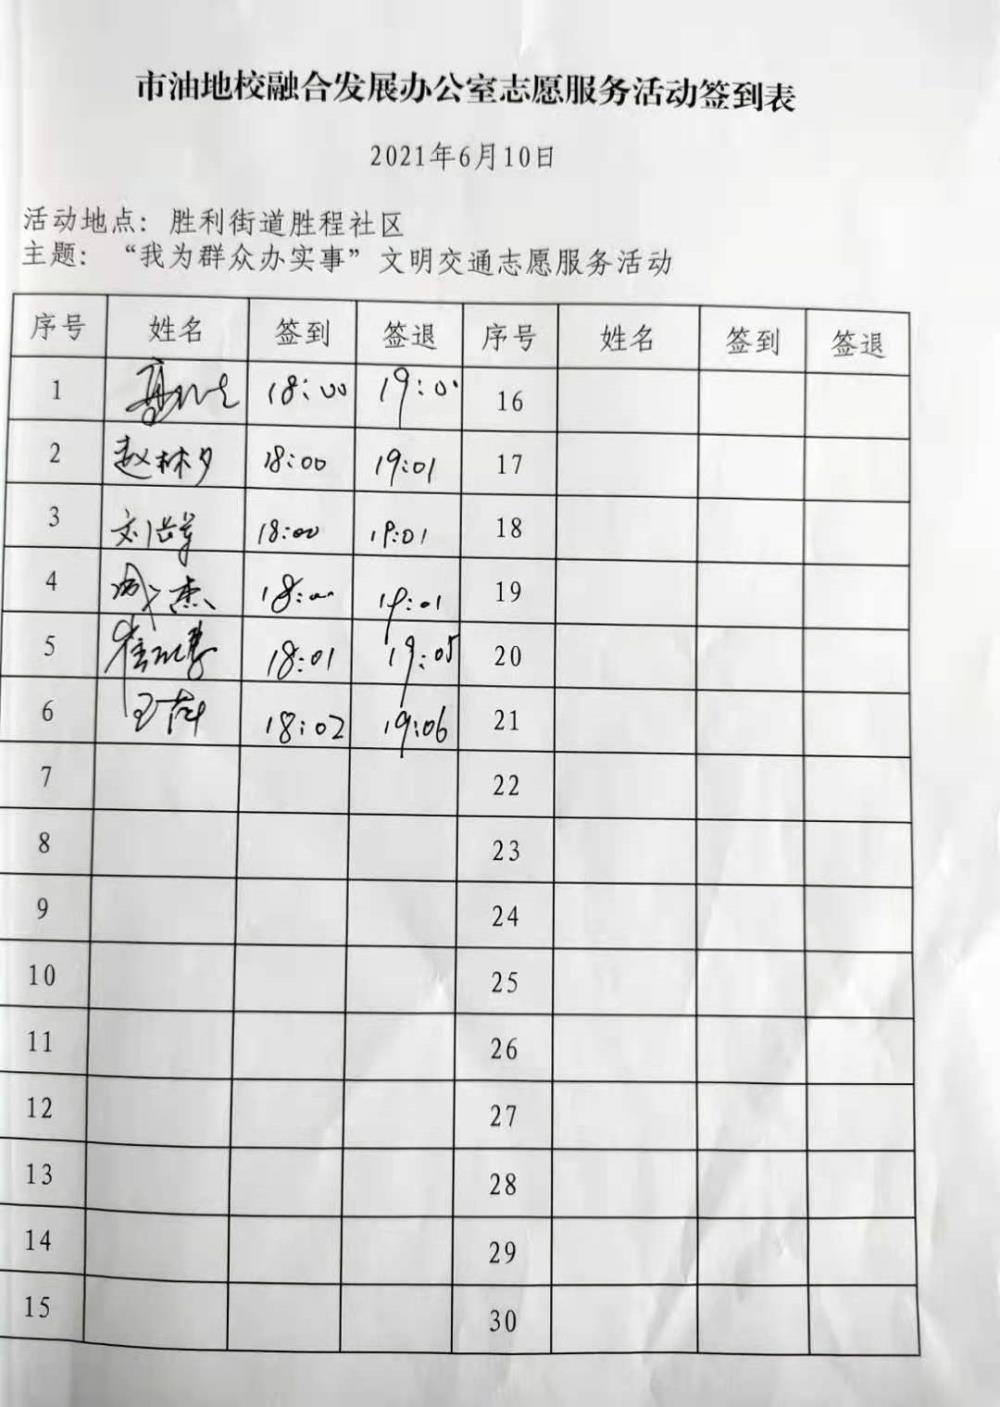 市油地校融合发展办公室志愿服务活动签到表
2021年6月10日
活动地点：胜利街道胜程社区
主题：“我为群众办实事”文明交通志愿服务活动
序号 姓名 签到 签退 序号 姓名 签到 签退
1 18:00 19:00 16
2 赵林夕 18:00 19:01 17
3 18:00 19:01 18
4 杰 18:00 19:01 19
5 18:01 19:05 20
6 王 18:02 19:06 21
7 22
8 23
9 24
10 25
11 26
12 27
13 28
14 29
15 30